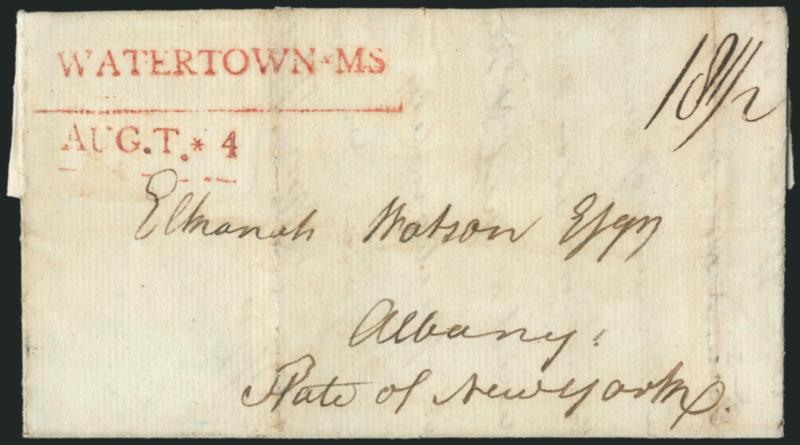 WATERTOWN*MS
AUG.T.* 4
18 1/2
Elkanah Watson Esqr
Albany,
State of New York.